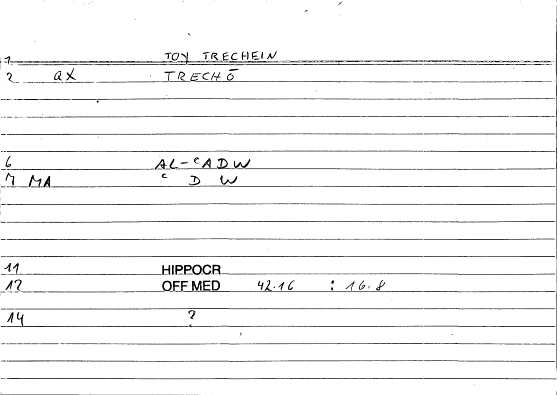 1 TOY TRECHEIN
2 ax TRECHŌ
6 AL-ʿADW
7 MA ʿ D W
11 HIPPOCR
12 OFF MED 42.16 : 16.8
14 ?